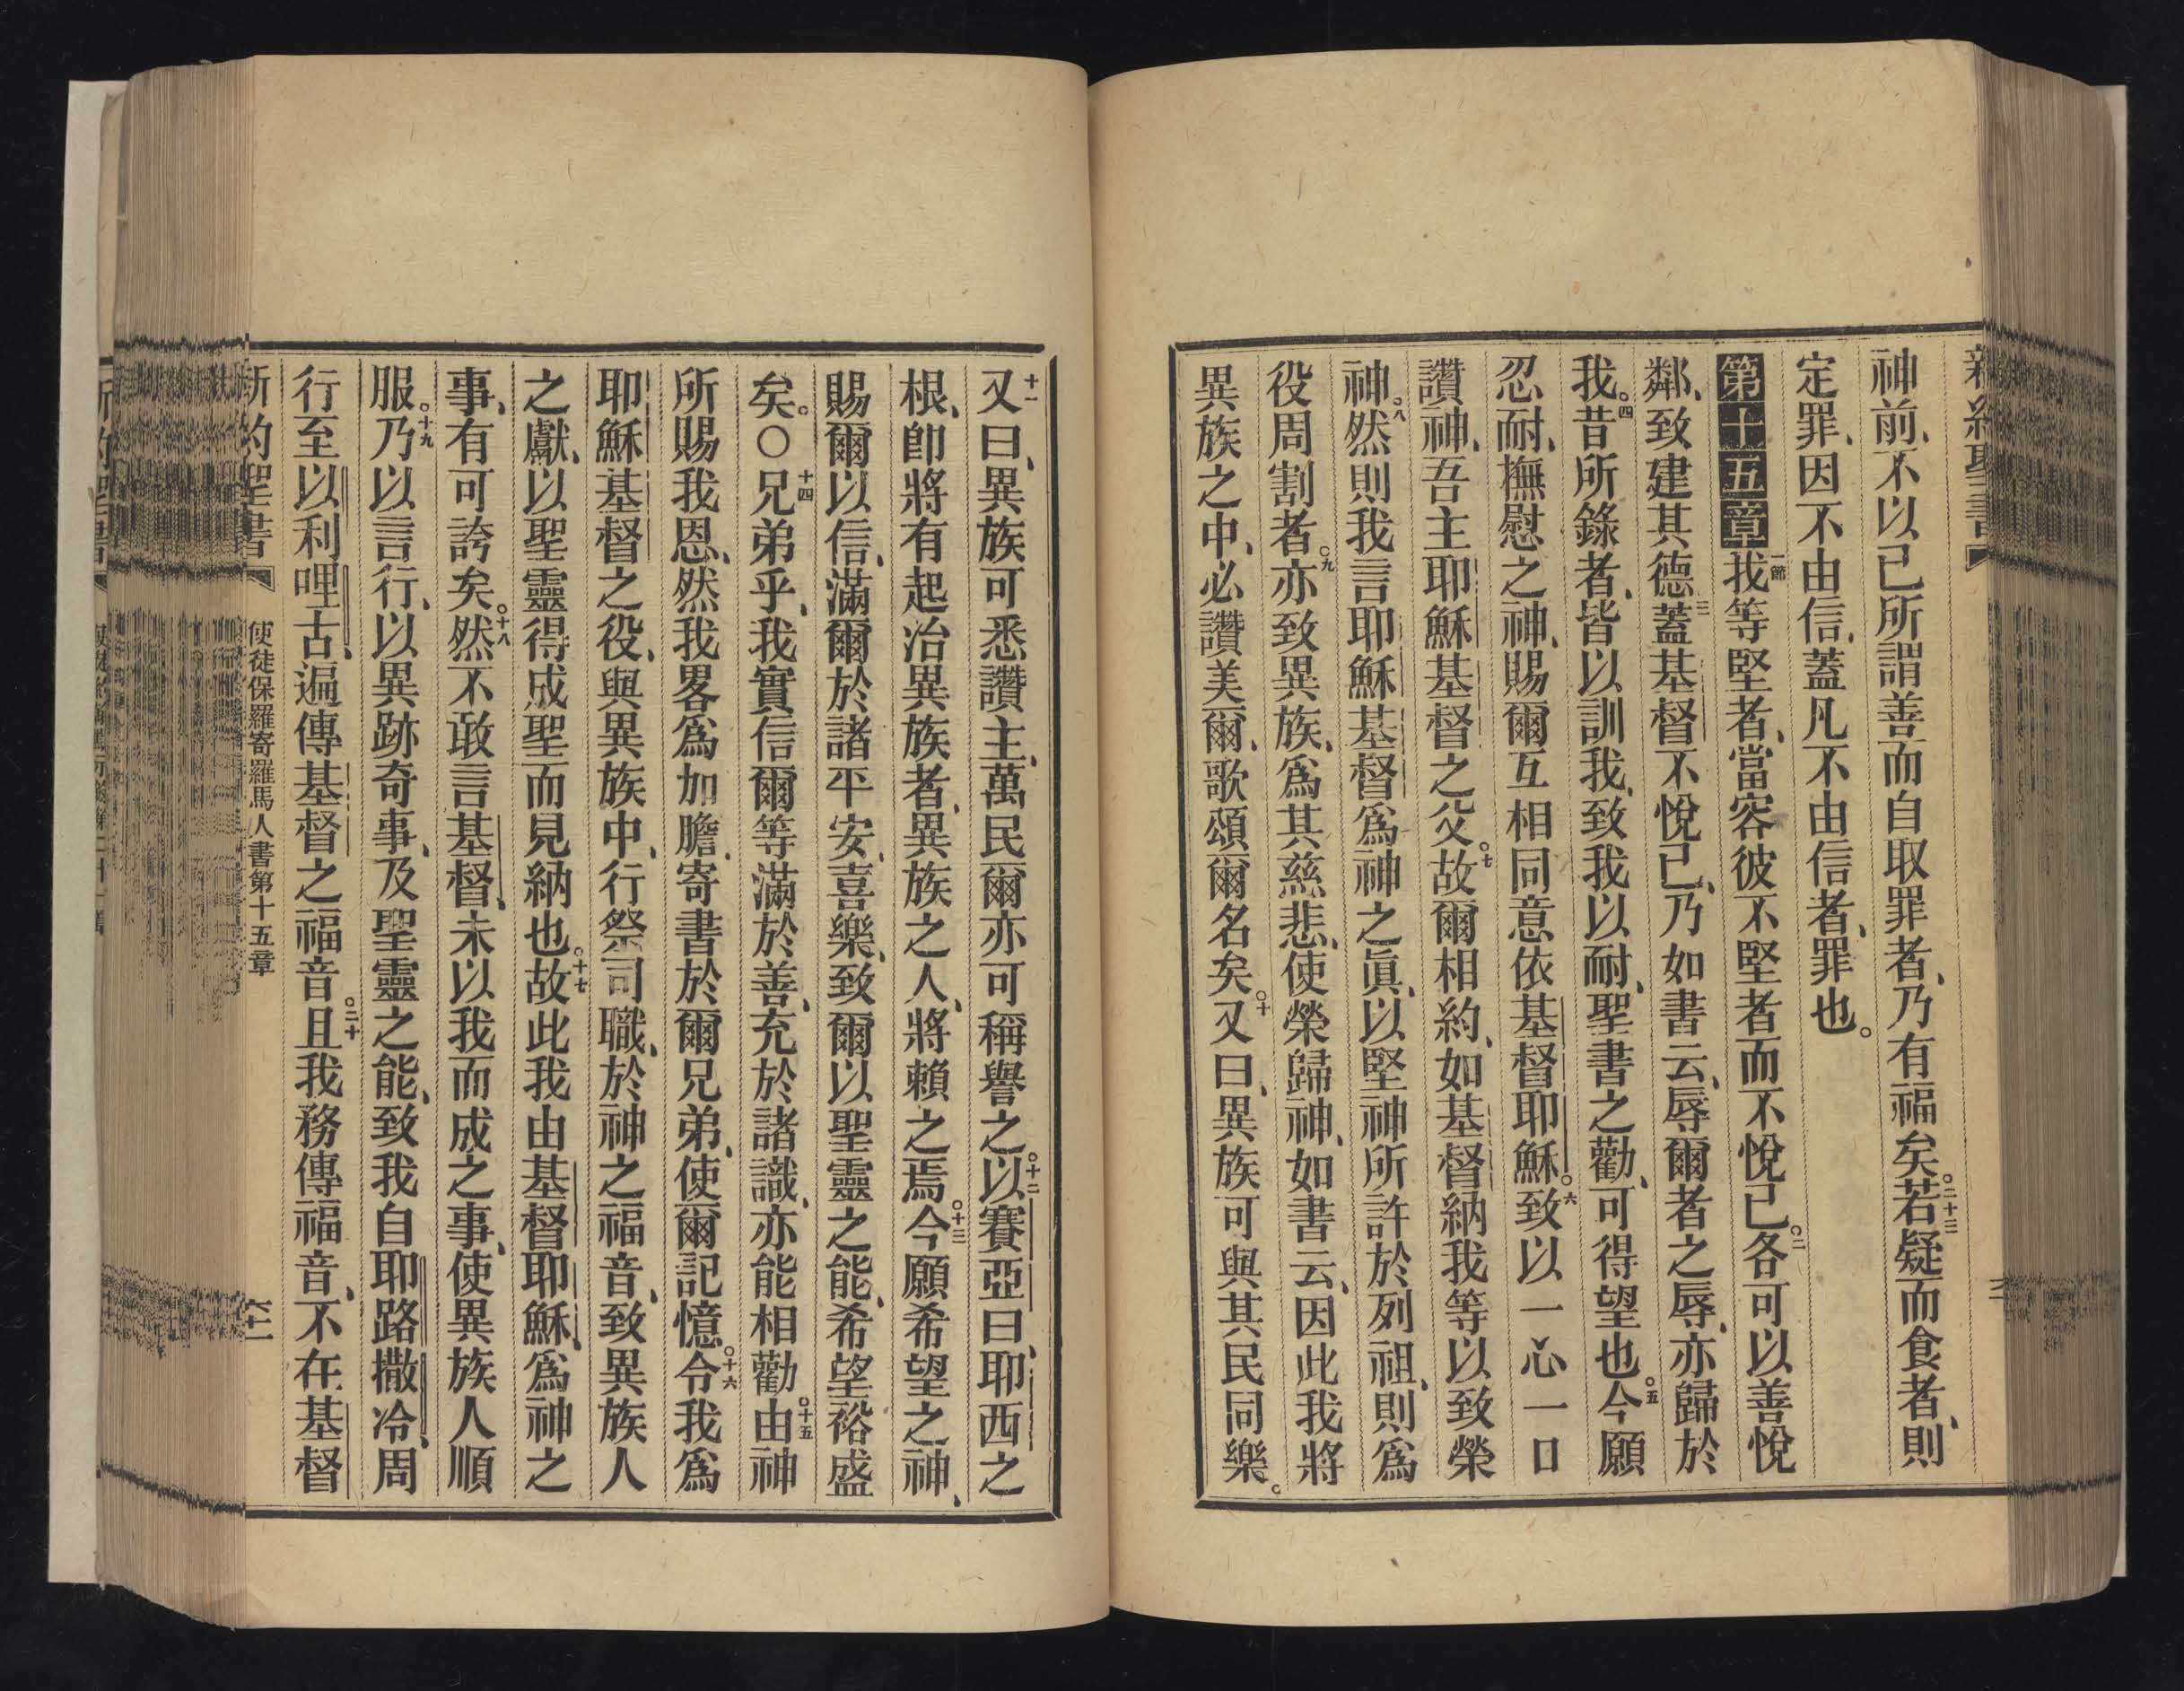 新約聖書
神前、不以己所謂善而自取罪者、乃有福矣。二十三若疑而食者、則
定罪、因不由信、蓋凡不由信者、罪也。
第十五章 一節我等堅者、當容彼不堅者而不悅己。二各可以善悅
鄰、致建其德。三蓋基督不悅己、乃如書云、辱爾者之辱、亦歸於
我。四昔所錄者、皆以訓我、致我以耐、聖書之勸、可得望也。五今願
忍耐、撫慰之神、賜爾互相同意依基督耶穌。六致以一心一口
讚神、吾主耶穌基督之父。七故爾相約、如基督納我等以致榮
神。八然則我言耶穌基督爲神之眞、以堅神所許於列祖、則爲
役周割者。九亦致異族、爲其慈悲、使榮歸神、如書云、因此我將
異族之中、必讚美爾、歌頌爾名矣。十又曰、異族可與其民同樂。
十一又曰、異族可悉讚主、萬民爾亦可稱譽之。十二以賽亞曰、耶西之
根、卽將有起治異族者、異族之人、將賴之焉。十三今願希望之神、
賜爾以信、滿爾於諸平安、喜樂、致爾以聖靈之能、希望裕盛
矣。〇十四兄弟乎、我實信爾等滿於善、充於諸識、亦能相勸。十五由神
所賜我恩、然我畧爲加膽、寄書於爾兄弟、使爾記憶。十六令我爲
耶穌基督之役、與異族中、行祭司職、於神之福音、致異族人
之獻、以聖靈得成聖而見納也。十七故此我由基督耶穌、爲神之
事、有可誇矣。十八然不敢言基督、未以我而成之事、使異族人順
服。十九乃以言行、以異跡奇事、及聖靈之能、致我自耶路撒冷、周
行至以利哩古、遍傳基督之福音。二十且我務傳福音、不在基督
新約聖書 使徒保羅寄羅馬人書第十五章